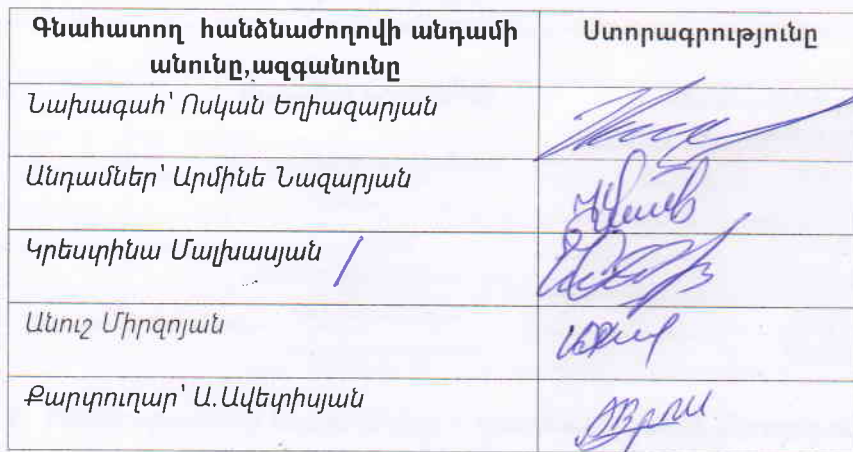 Գնահատող հանձնաժողովի անդամի
անունը,ազգանունը
Ստորագրությունը
Նախագահ՝ Ոսկան Եղիազարյան
Անդամներ՝ Արմինե Նազարյան
Կրեստինա Մալխասյան
Անուշ Միրզոյան
Քարտուղար՝ Ա.Ավետիսյան